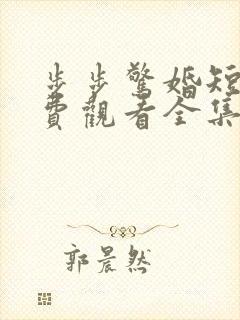 步步驚婚短
費觀看全集
郭晨然